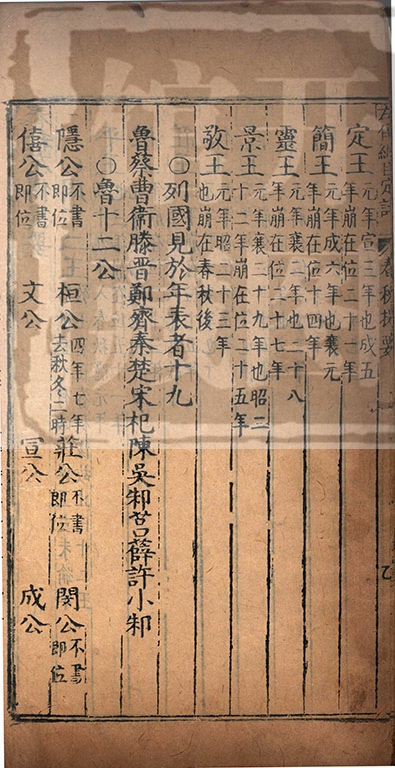 定王 元年宣三年也成五
年崩在位二十一年
簡王 元年成六年也襄元
年崩在位十四年
靈王 元年襄二年也二十八
年崩在位二十七年
景王 元年襄二十九年也昭二
十二年崩在位二十五年
敬王 元年昭二十三年
也崩在春秋後
〇列國見於年表者十九
魯蔡曹衞滕晉鄭齊秦楚宋杞陳吳邾莒薛許小邾
〇魯十二公
隱公 不書即位 桓公 四年七年去秋冬二時 莊公 不書即位 閔公 不書即位
僖公 不書即位 文公 宣公 成公